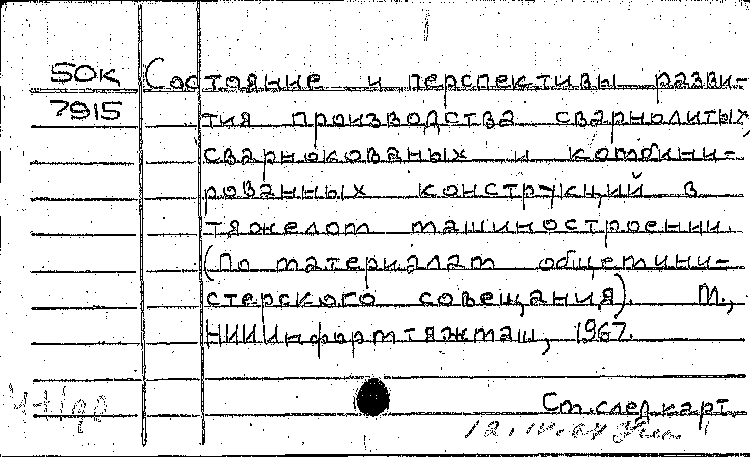 50К Состояние и перспективы разви-
7915 тия производства сварнолитых,
сварнокованых и комбини-
рованных конструкций в
тяжелом машиностроении.
(По материалам общемини-
стерского совещания). М.,
НИИИнформтяжмаш, 1967.
См.след.карт.